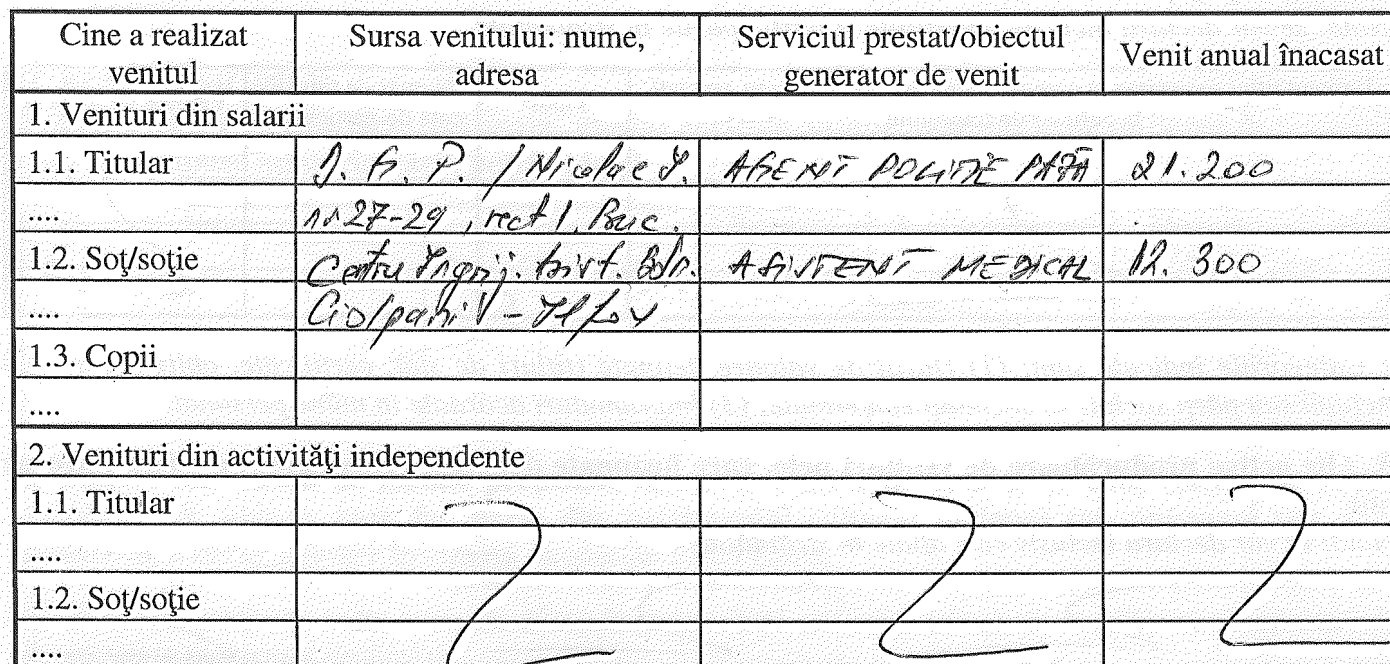 Cine a realizat venitul
Sursa venitului: nume, adresa
Serviciul prestat/obiectul generator de venit
Venit anual înacasat
1. Venituri din salarii
1.1. Titular
/ Nicolae
AGENT POLIŢIE
21.200
....
27-29, sect 1, Buc.
1.2. Soţ/soţie
Centru Îngrij.
ASISTENT MEDICAL
12.300
....
- Ilfov
1.3. Copii
....
2. Venituri din activităţi independente
1.1. Titular
....
1.2. Soţ/soţie
....